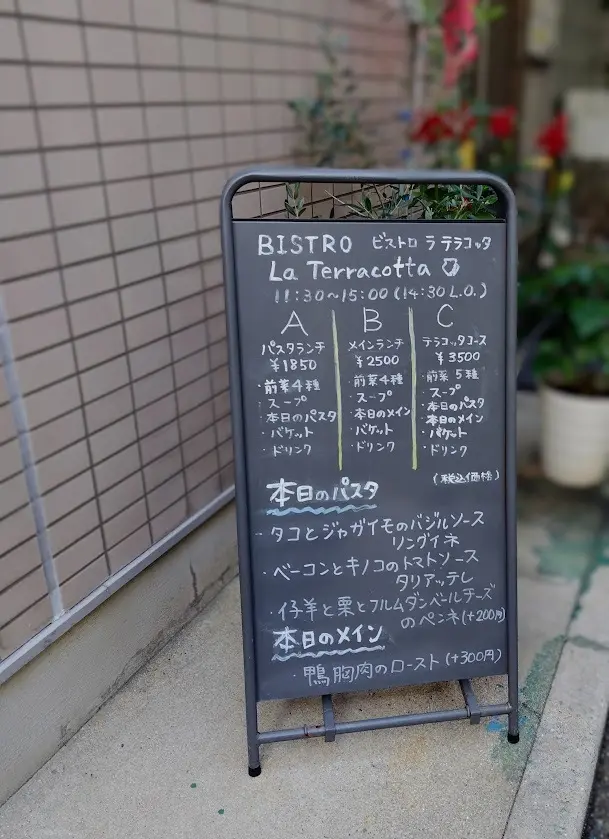 BISTRO ビストロ ラ テラコッタ
La Terracotta
11:30～15:00 (14:30 L.O.)
A
パスタランチ
¥1850
・前菜4種
・スープ
・本日のパスタ
・バケット
・ドリンク
B
メインランチ
¥2500
・前菜4種
・スープ
・本日のメイン
・バケット
・ドリンク
C
テラコッタコース
¥3500
・前菜5種
・スープ
・本日のパスタ
・本日のメイン
・バケット
・ドリンク
(税込価格)
本日のパスタ
・タコとジャガイモのバジルソース
リングイネ
・ベーコンとキノコのトマトソース
タリアッテレ
・仔羊と栗とフルムダンベールチーズ
のペンネ(+200円)
本日のメイン
・鴨胸肉のロースト(+300円)